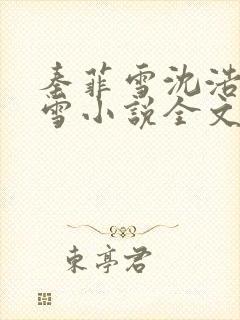 秦菲雪沈浩
雪小说全文
东亭君